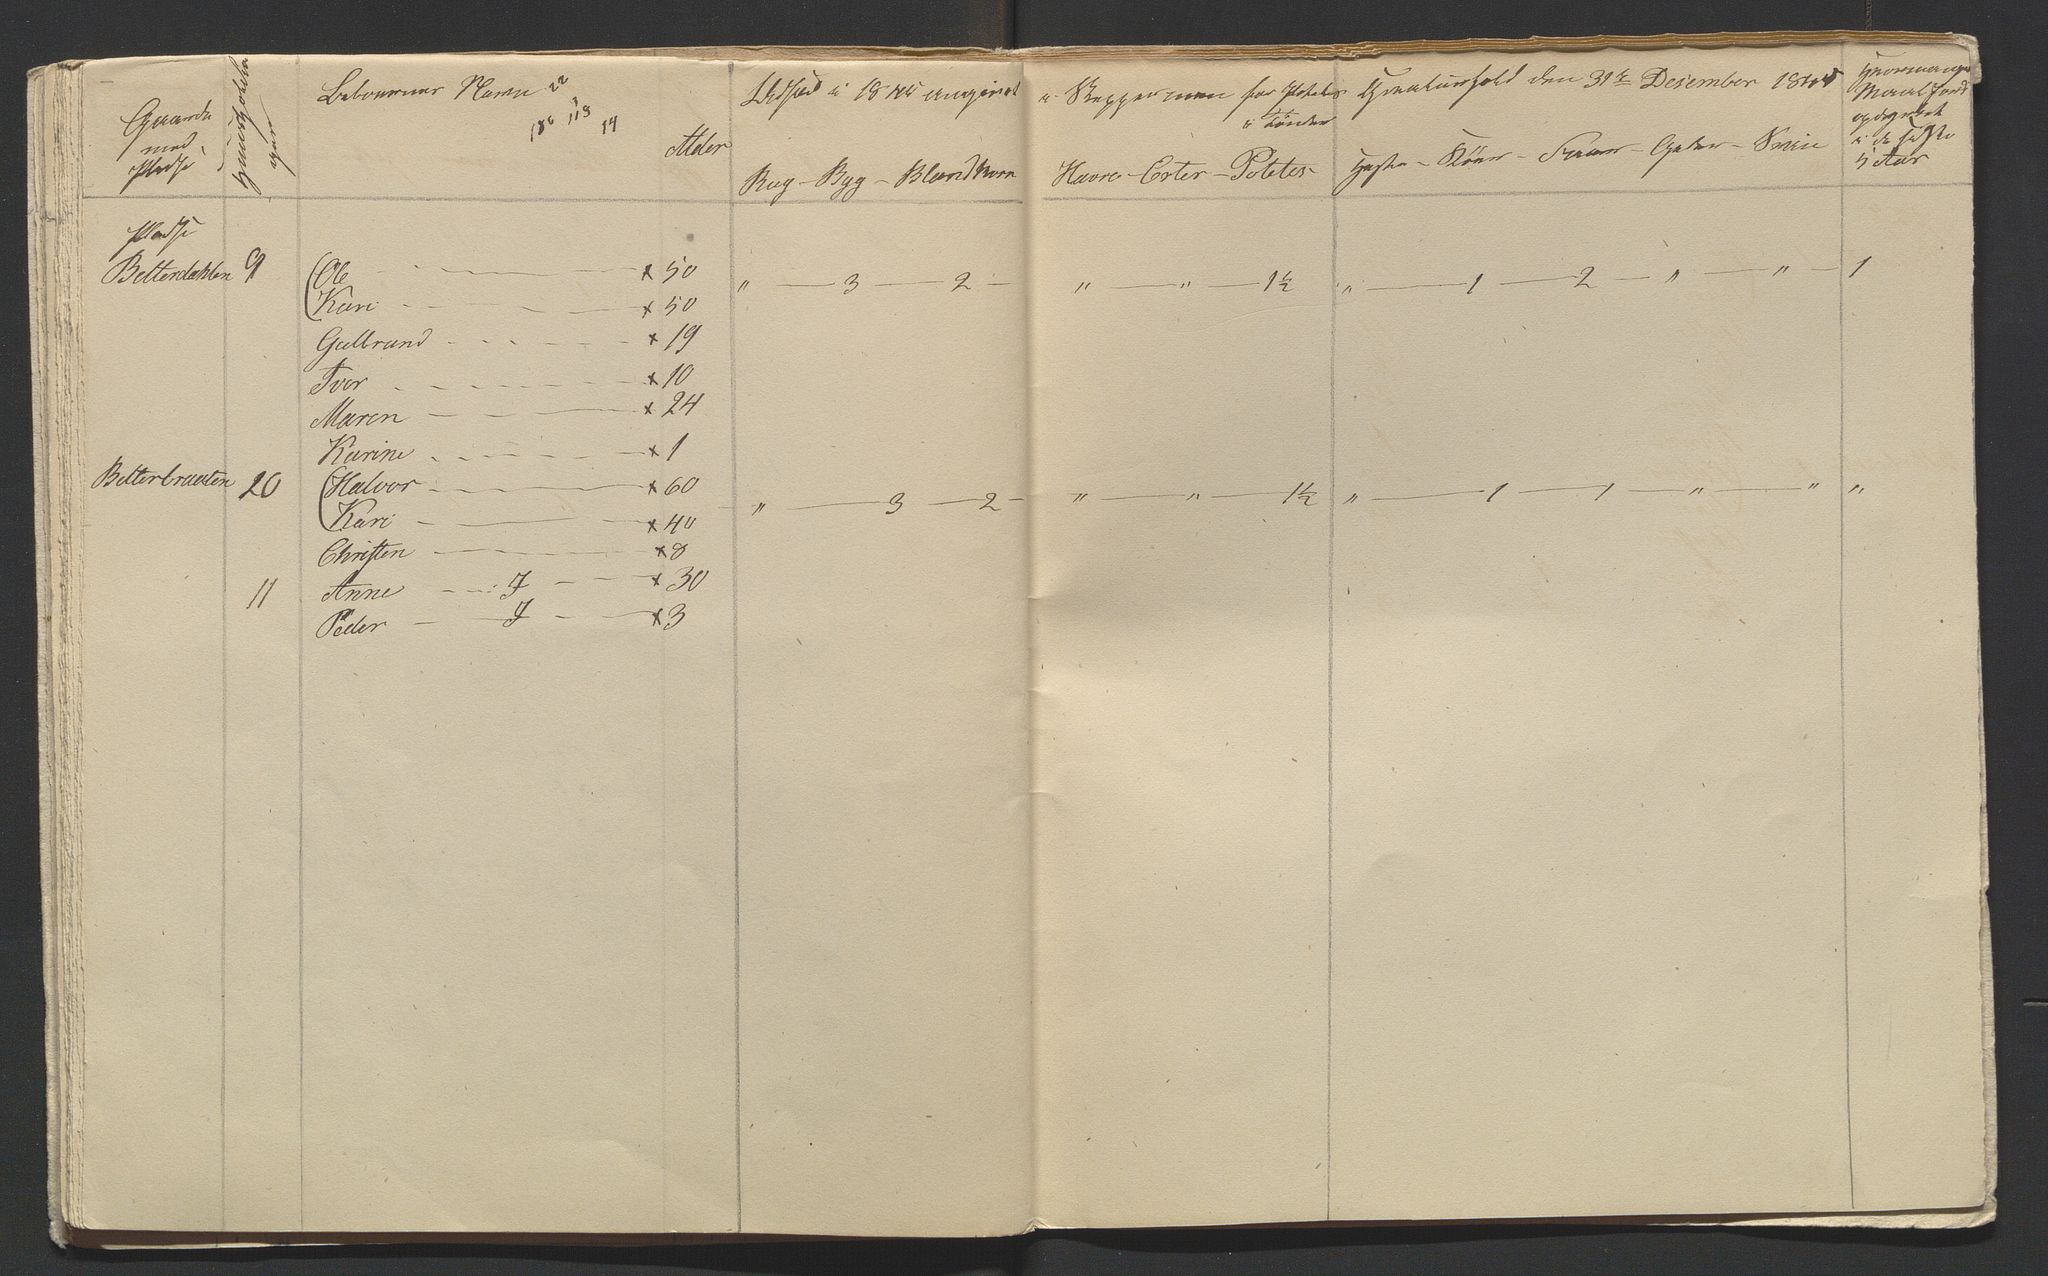 Gaarde med Pladse
Huusholdninger
Beboernes Navn
22
186 118 14
Alder
Udsæd i 1845 angivet
i Skjepper men for Potetes
i Tønder
Rug - Byg - Blandkorn
Havre - Erter - Potetes
Kreaturhold den 31te Desember 1845
Heste - Kiöer - Faar - Geder - Sviin
Hvormange
Maal Jord
opdyrket
i de sidste
5 Aar
Pladse
Betterdahlen 9 Ole x 50 " 3 2 " " 1½ " 1 2 " " 1
Kari x 50
Gulbrand x 19
Iver x 10
Maren x 24
Karine x 1
Betterbraaten 20 Halvor x 60 " 3 2 " " 1½ " 1 1 " " "
Kari x 40
Christen x 8
11 Anne I x 30
Peder I x 3